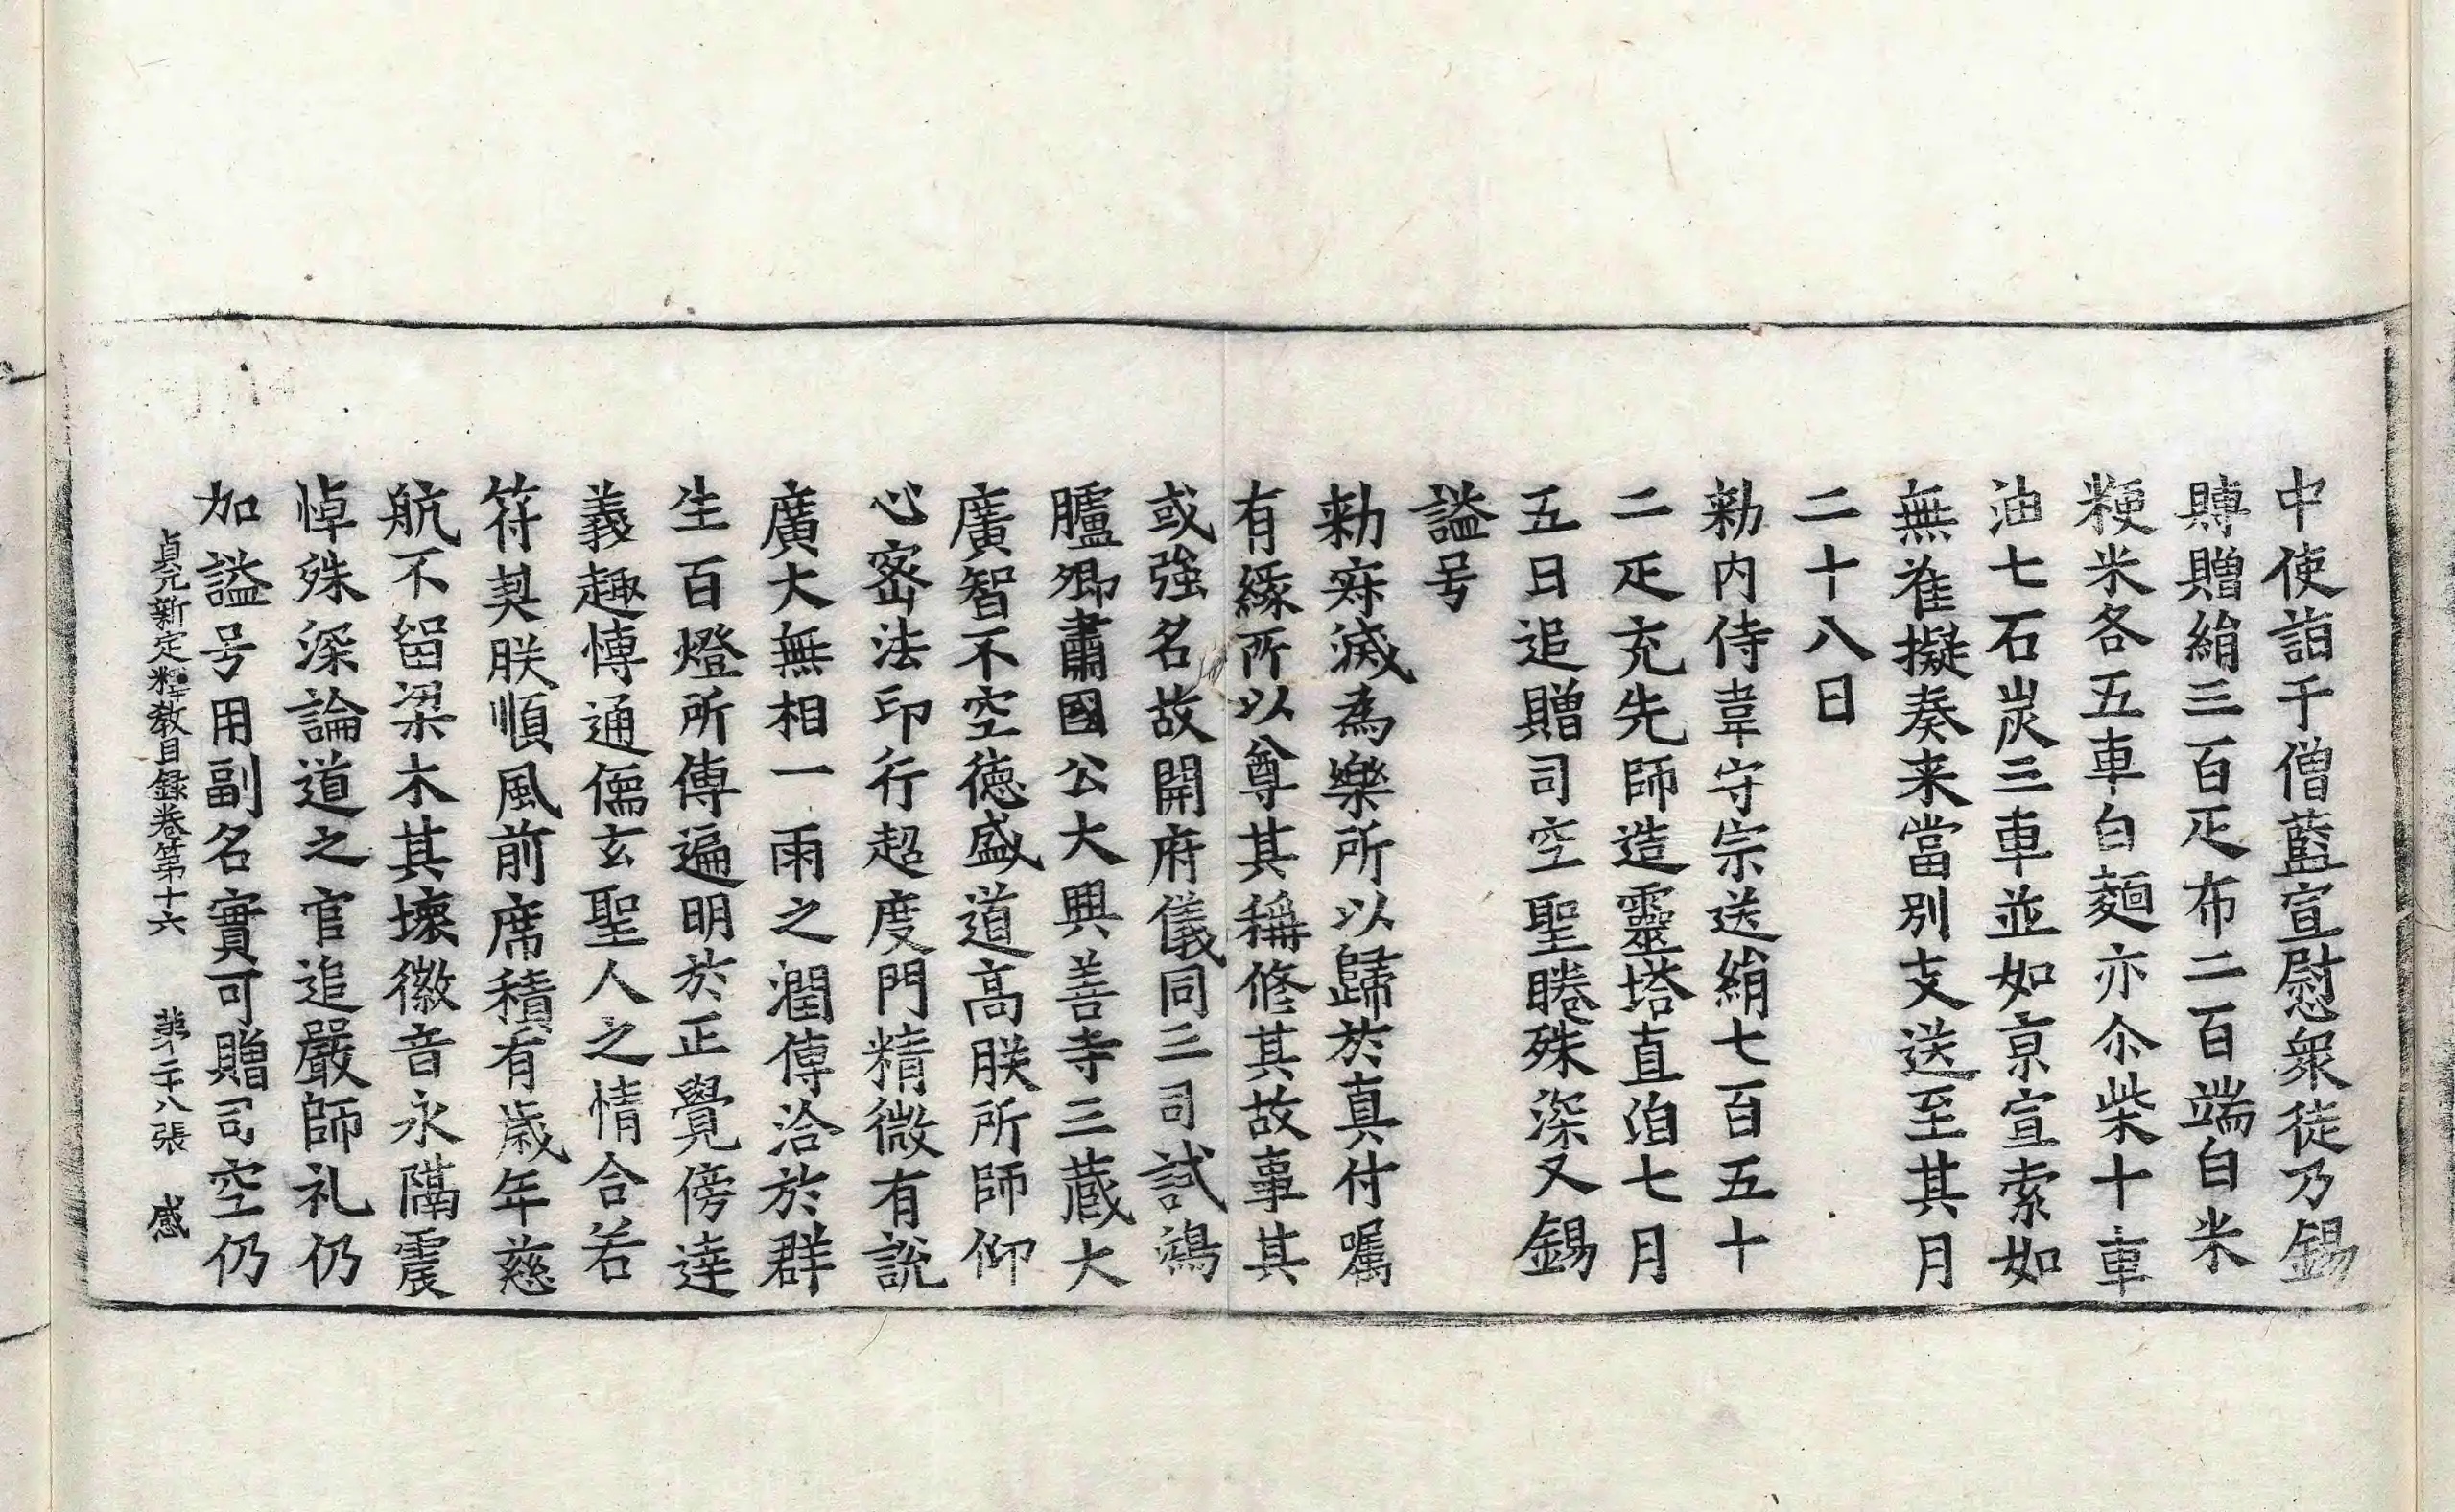 中使詣于僧藍宣慰衆徒乃錫
賻贈絹三百疋布二百端白米
粳米各五車白麵亦尒柴十車
油七石炭三車並如京宣索如
無准擬奏来當別支送至其月
二十八日
勑内侍韋守宗送絹七百五十
二疋充先師造靈塔直洎七月
五日追贈司空聖睠殊深又錫
謚号
勑寂滅為樂所以歸於真付囑
有緣所以尊其稱修其故事其
或強名故開府儀同三司試鴻
臚卿肅國公大興善寺三蔵大
廣智不空德盛道高朕所師仰
心密法印行超度門精微有說
廣大無相一雨之潤傳洽於群
生百燈所傳遍明於正覺傍達
義趣博通儒玄聖人之情合若
符契朕順風前席積有歲年慈
航不留梁木其壞徽音永隔震
悼殊深論道之官追嚴師礼仍
加謚号用副名實可贈司空仍
貞元新定釋教目録卷第十六 第二十八張 感